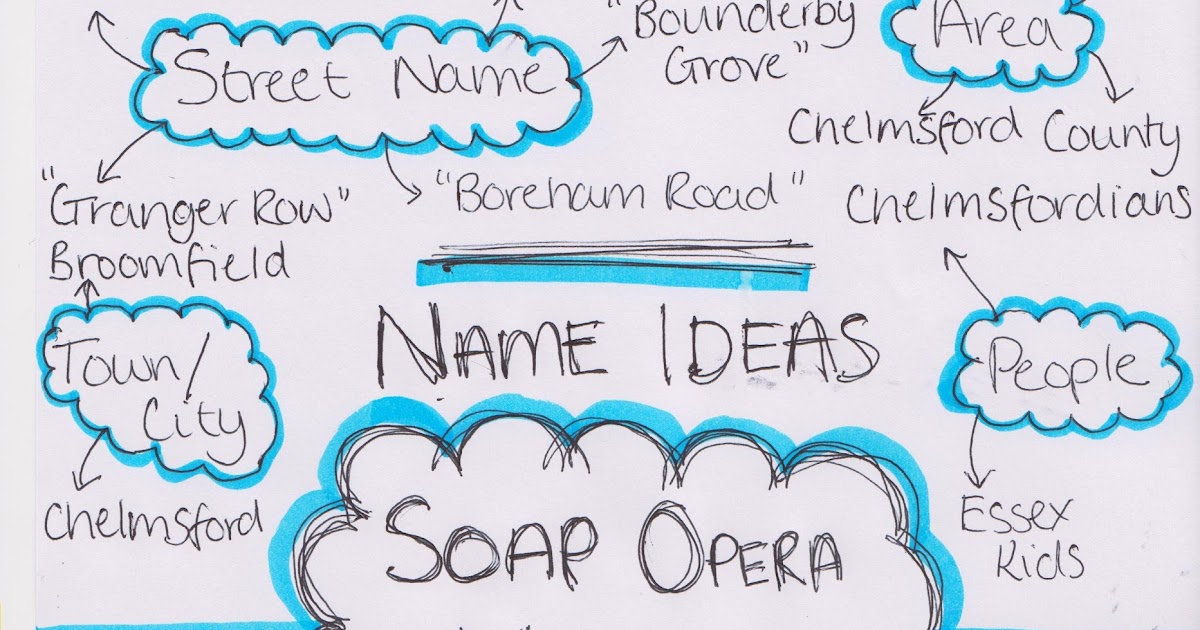 "Bounderby
Grove"
Area
Street Name
Chelmsford County
"Granger Row"
"Boreham Road"
Chelmsfordians
Broomfield
Town/
City
NAME IDEAS
People
Chelmsford
Essex
Kids
SOAP OPERA